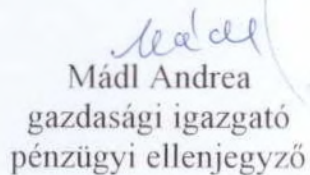 Mádl
Mádl Andrea
gazdasági igazgató
pénzügyi ellenjegyző